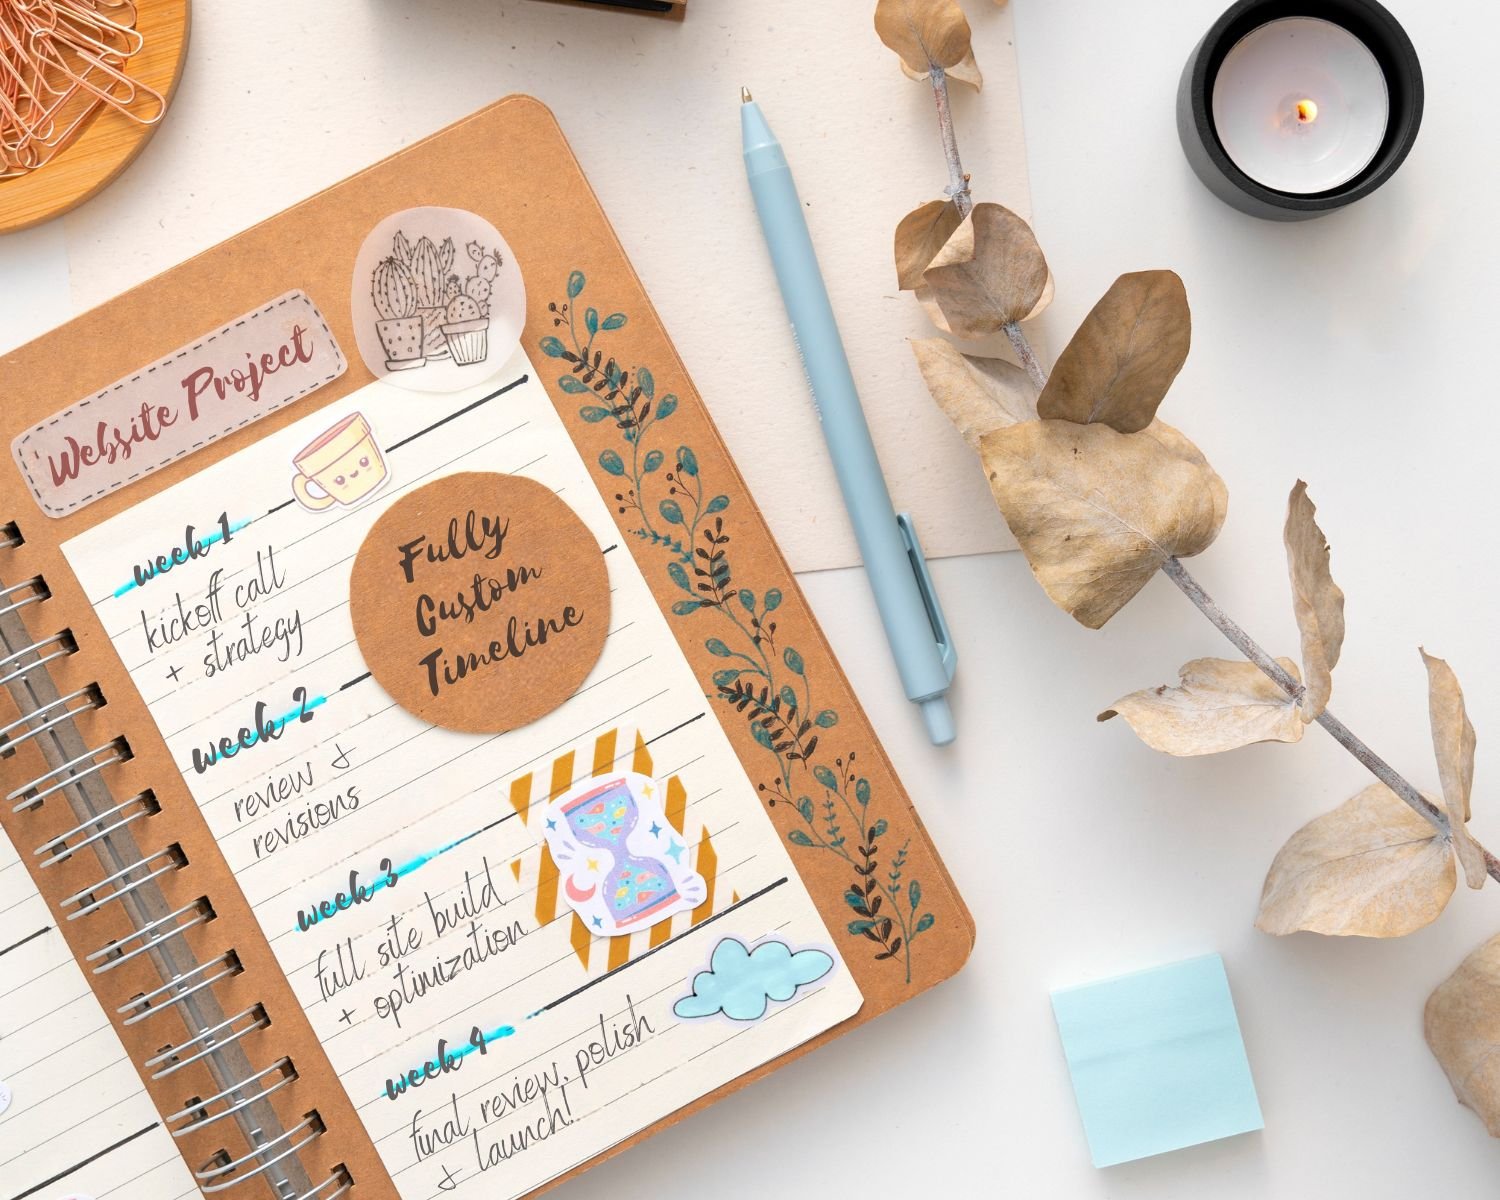 Website Project
Fully
Custom
Timeline
week 1
kickoff call
+ strategy
week 2
review &
revisions
week 3
full site build
+ optimization
week 4
final review, polish
& launch!